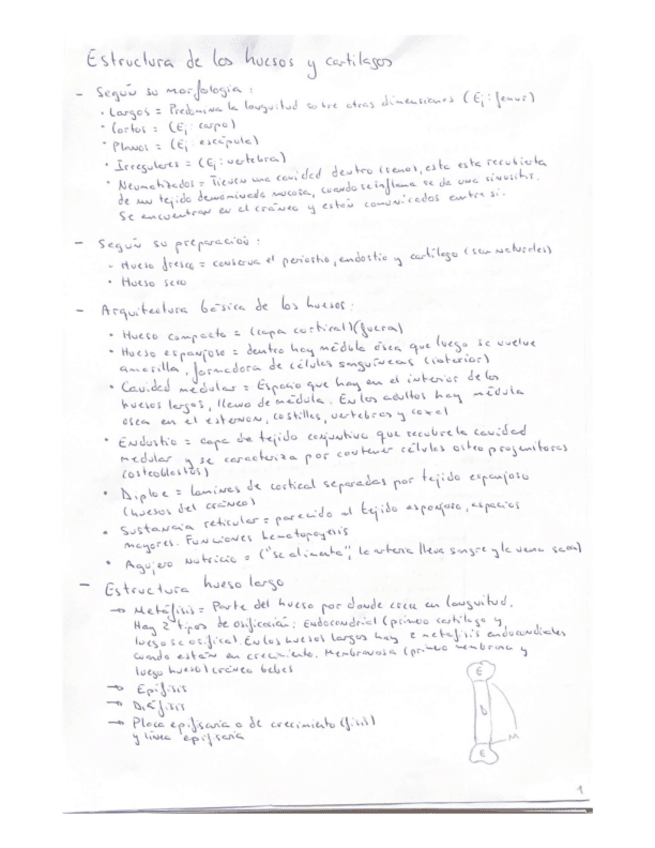 Estructura de los huesos y cartilagos
- Según su morfología:
· Largos = Predomina la longuitud sobre otras dimensiones (Ej: femur)
· Cortos = (Ej: carpo)
· Planos = (Ej: escápula)
· Irregulares = (Ej: vertebra)
· Neumatizados = Tienen una cavidad dentro (seno), esta esta recubierta
de un tejido denominado mucosa, cuando se inflama se da una sinusitis.
Se encuentran en el cráneo y están comunicados entre si.
- Según su preparación:
- Hueso fresco = conserva el periostio, endostio y cartílago (son naturales)
· Hueso seco
- Arquitectura básica de los huesos:
· Hueso compacto = (capa cortical) (fuera)
· Hueso esponjoso = dentro hay médula ósea que luego se vuelve
amarilla, formadora de células sanguíneas (interior)
· Cavidad medular = Espacio que hay en el interior de los
huesos largos, lleno de médula. En los adultos hay médula
osea en el esternon, costillas, vertebras y coxal
· Endostio = capa de tejido conjuntivo que recubre la cavidad
medular y se caracteriza por contener células osteoprogenitoras
(osteoblastos)
· Diploe = laminas de cortical separadas por tejido esponjoso
(huesos del cráneo)
· Sustancia reticular = parecido al tejido esponjoso, espacios
mayores. Funciones hematopoyesis
· Agujero nutricio = ("se alimenta", la arteria lleva sangre y la vena saca)
- Estructura hueso largo
→ Metáfisis = Parte del hueso por donde crece en longuitud.
Hay 2 tipos de osificación: Endocondrial (primero cartilago y
luego se osifica). En los huesos largos hay 2 metafisis endocondriales
cuando están en crecimiento. Membranosa (primero membrana y
luego hueso) cráneo bebes
→ Epífisis
→ Diáfisis
→ Placa epifisaria o de crecimiento (fisis)
y línea epifisaria
E
D
M
E
1